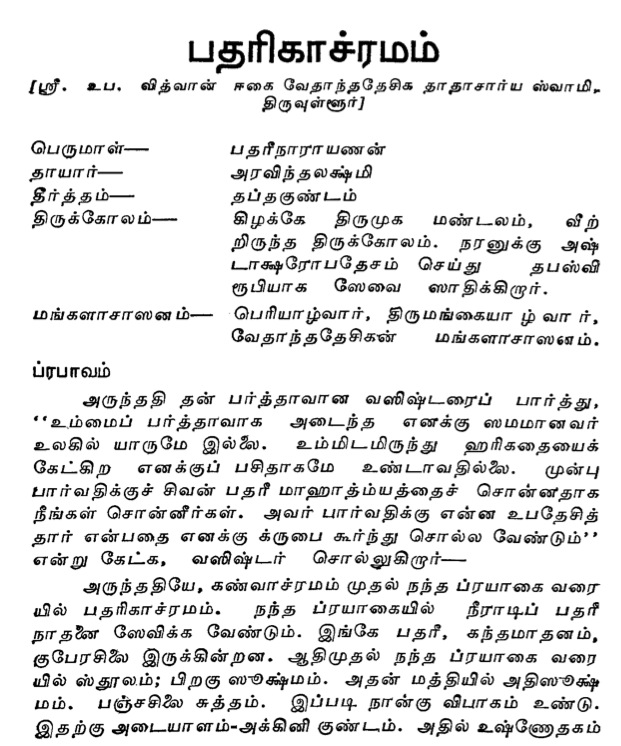 பதரிகாச்ரமம்
[ஸ்ரீ. உப. வித்வான் ஈகை வேதாந்ததேசிக தாதாசார்ய ஸ்வாமி,
திருவுள்ளூர்]
பெருமாள்— பதரீநாராயணன்
தாயார்— அரவிந்தலக்ஷ்மி
தீர்த்தம்— தப்தகுண்டம்
திருக்கோலம்— கிழக்கே திருமுக மண்டலம், வீற்
றிருந்த திருக்கோலம். நரனுக்கு அஷ்
டாக்ஷரோபதேசம் செய்து தபஸ்வி
ரூபியாக ஸேவை ஸாதிக்கிறார்.
மங்களாசாஸனம்— பெரியாழ்வார், திருமங்கையாழ்வார்,
வேதாந்ததேசிகன் மங்களாசாஸனம்.
ப்ரபாவம்
அருந்ததி தன் பர்த்தாவான வஸிஷ்டரைப் பார்த்து,
‘‘உம்மைப் பர்த்தாவாக அடைந்த எனக்கு ஸமமானவர்
உலகில் யாருமே இல்லை. உம்மிடமிருந்து ஹரிகதையைக்
கேட்கிற எனக்குப் பசிதாகமே உண்டாவதில்லை. முன்பு
பார்வதிக்குச் சிவன் பதரீ மாஹாத்ம்யத்தைச் சொன்னதாக
நீங்கள் சொன்னீர்கள். அவர் பார்வதிக்கு என்ன உபதேசித்
தார் என்பதை எனக்கு க்ருபை கூர்ந்து சொல்ல வேண்டும்’’
என்று கேட்க, வஸிஷ்டர் சொல்லுகிறார்—
அருந்ததியே, கண்வாச்ரமம் முதல் நந்த ப்ரயாகை வரை
யில் பதரிகாச்ரமம். நந்த ப்ரயாகையில் நீராடிப் பதரீ
நாதனை ஸேவிக்க வேண்டும். இங்கே பதரீ, கந்தமாதனம்,
குபேரசிலை இருக்கின்றன. ஆதிமுதல் நந்த ப்ரயாகை வரை
யில் ஸ்தூலம்; பிறகு ஸூக்ஷ்மம். அதன் மத்தியில் அதிஸூக்ஷ்
மம். பஞ்சசிலை சுத்தம். இப்படி நான்கு விபாகம் உண்டு.
இதற்கு அடையாளம்-அக்கினி குண்டம். அதில் உஷ்ணோதகம்